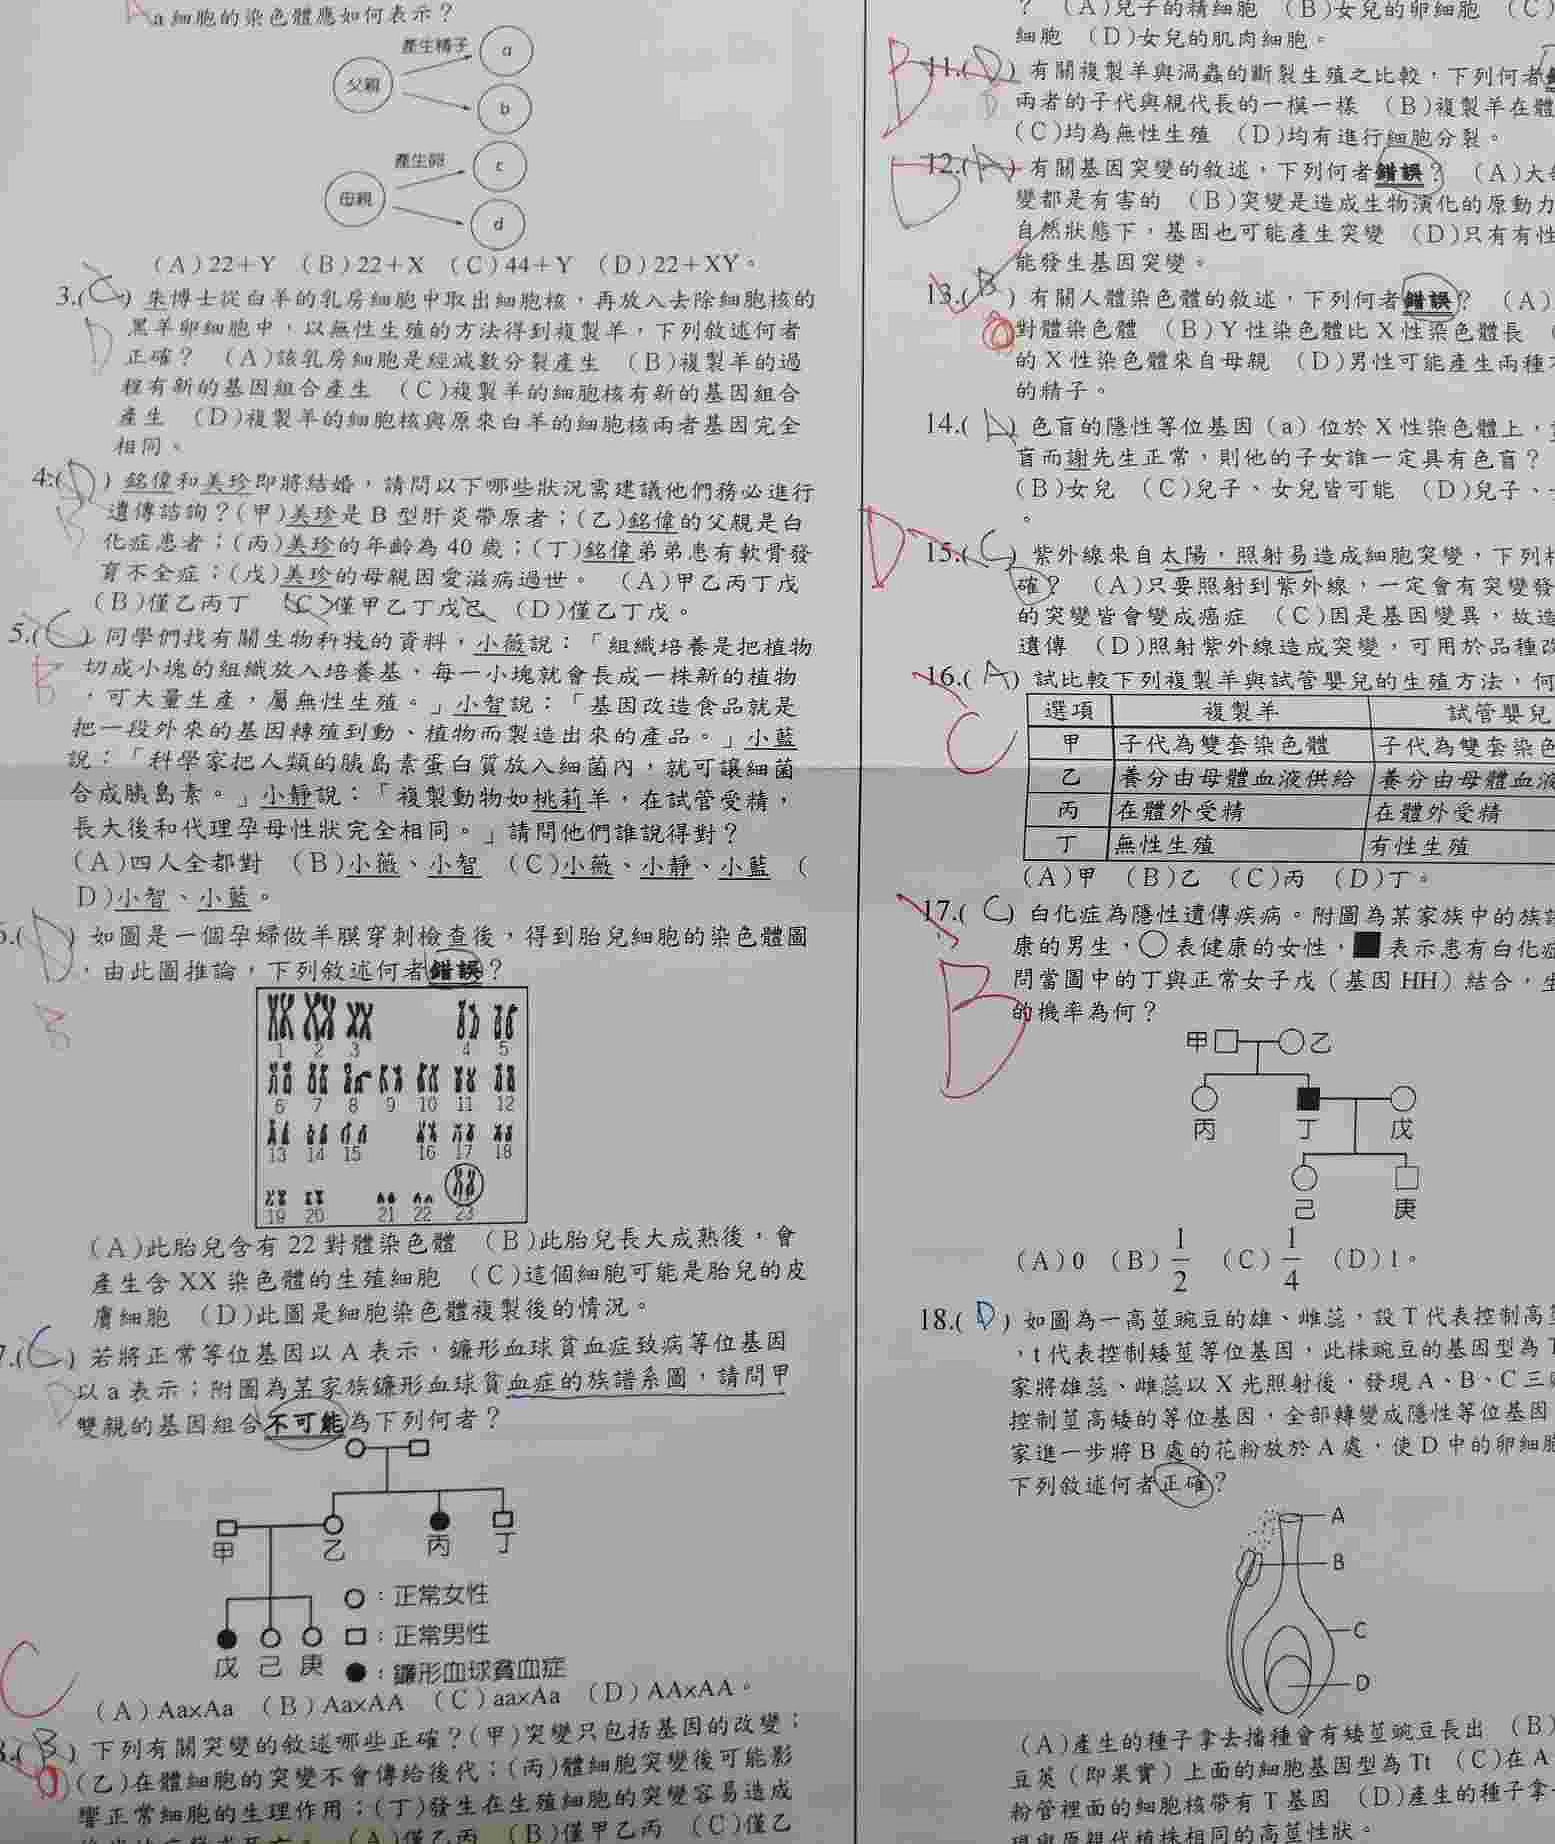 a 細胞的染色體應如何表示？
產生精子
父親
a
b
產生卵
母親
c
d
（A）22＋Y （B）22＋X （C）44＋Y （D）22＋XY。
3.(C) 朱博士從白羊的乳房細胞中取出細胞核，再放入去除細胞核的
黑羊卵細胞中，以無性生殖的方法得到複製羊，下列敘述何者
D
正確？ （A）該乳房細胞是經減數分裂產生 （B）複製羊的過
程有新的基因組合產生 （C）複製羊的細胞核有新的基因組合
產生 （D）複製羊的細胞核與原來白羊的細胞核兩者基因完全
相同。
4.(D) 銘偉和美珍即將結婚，請問以下哪些狀況需建議他們務必進行
B
遺傳諮詢？(甲)美珍是 B 型肝炎帶原者；(乙)銘偉的父親是白
化症患者；(丙)美珍的年齡為 40 歲；(丁)銘偉弟弟患有軟骨發
育不全症；(戊)美珍的母親因愛滋病過世。 （A）甲乙丙丁戊
（B）僅乙丙丁 （C）僅甲乙丁戊己 （D）僅乙丁戊。
5.(C) 同學們找有關生物科技的資料，小薇說：「組織培養是把植物
B
切成小塊的組織放入培養基，每一小塊就會長成一株新的植物
，可大量生產，屬無性生殖。」小智說：「基因改造食品就是
把一段外來的基因轉殖到動、植物而製造出來的產品。」小藍
說：「科學家把人類的胰島素蛋白質放入細菌內，就可讓細菌
合成胰島素。」小靜說：「複製動物如桃莉羊，在試管受精，
長大後和代理孕母性狀完全相同。」請問他們誰說得對？
（A）四人全都對 （B）小薇、小智 （C）小薇、小靜、小藍 （
D）小智、小藍。
6.(D) 如圖是一個孕婦做羊膜穿刺檢查後，得到胎兒細胞的染色體圖
，由此圖推論，下列敘述何者錯誤？
B
1 2 3 4 5
6 7 8 9 10 11 12
13 14 15 16 17 18
19 20 21 22 23
（A）此胎兒含有 22 對體染色體 （B）此胎兒長大成熟後，會
產生含 XX 染色體的生殖細胞 （C）這個細胞可能是胎兒的皮
膚細胞 （D）此圖是細胞染色體複製後的情況。
7.(C) 若將正常等位基因以 A 表示，鐮形血球貧血症致病等位基因
D
以 a 表示；附圖為某家族鐮形血球貧血症的族譜系圖，請問甲
雙親的基因組合不可能為下列何者？
甲 乙 丙 丁
戊 己 庚
○：正常女性
□：正常男性
●：鐮形血球貧血症
C
（A）Aa×Aa （B）Aa×AA （C）aa×Aa （D）AA×AA。
8.(B) 下列有關突變的敘述哪些正確？(甲)突變只包括基因的改變；
(乙)在體細胞的突變不會傳給後代；(丙)體細胞突變後可能影
響正常細胞的生理作用；(丁)發生在生殖細胞的突變容易造成
（A）僅乙丙 （B）僅甲乙丙 （C）僅乙
？ （A）兒子的精細胞 （B）女兒的卵細胞 （C）
細胞 （D）女兒的肌肉細胞。
B
11.(D) 有關複製羊與渦蟲的斷裂生殖之比較，下列何者
D
兩者的子代與親代長的一模一樣 （B）複製羊在體
（C）均為無性生殖 （D）均有進行細胞分裂。
D
12.(A) 有關基因突變的敘述，下列何者錯誤？ （A）大
變都是有害的 （B）突變是造成生物演化的原動力
自然狀態下，基因也可能產生突變 （D）只有有性
能發生基因突變。
13.(B) 有關人體染色體的敘述，下列何者錯誤？ （A）
對體染色體 （B）Y 性染色體比 X 性染色體長
的 X 性染色體來自母親 （D）男性可能產生兩種
的精子。
14.( ) 色盲的隱性等位基因（a）位於 X 性染色體上，
盲而謝先生正常，則他的子女誰一定具有色盲？
（B）女兒 （C）兒子、女兒皆可能 （D）兒子、
。
D
15.(C) 紫外線來自太陽，照射易造成細胞突變，下列
確？ （A）只要照射到紫外線，一定會有突變發
的突變皆會變成癌症 （C）因是基因變異，故造
遺傳 （D）照射紫外線造成突變，可用於品種改
16.(A) 試比較下列複製羊與試管嬰兒的生殖方法，何
C
選項 複製羊 試管嬰兒
甲 子代為雙套染色體 子代為雙套染色
乙 養分由母體血液供給 養分由母體血液
丙 在體外受精 在體外受精
丁 無性生殖 有性生殖
（A）甲 （B）乙 （C）丙 （D）丁。
17.(C) 白化症為隱性遺傳疾病。附圖為某家族中的族譜
康的男生，○表健康的女性，■表示患有白化症
B
問當圖中的丁與正常女子戊（基因 HH）結合，生
的機率為何？
甲 乙
丙 丁 戊
己 庚
（A）0 （B）1/2 （C）1/4 （D）1。
18.(D) 如圖為一高莖豌豆的雄、雌蕊，設 T 代表控制高莖
，t 代表控制矮莖等位基因，此株豌豆的基因型為 T
家將雄蕊、雌蕊以 X 光照射後，發現 A、B、C 三
控制莖高矮的等位基因，全部轉變成隱性等位基因
家進一步將 B 處的花粉放於 A 處，使 D 中的卵細胞
下列敘述何者正確？
A
B
C
D
（A）產生的種子拿去播種會有矮莖豌豆長出 （B）
豆莢（即果實）上面的細胞基因型為 Tt （C）在 A
粉管裡面的細胞核帶有 T 基因 （D）產生的種子拿
現與原親代植株相同的高莖性狀。